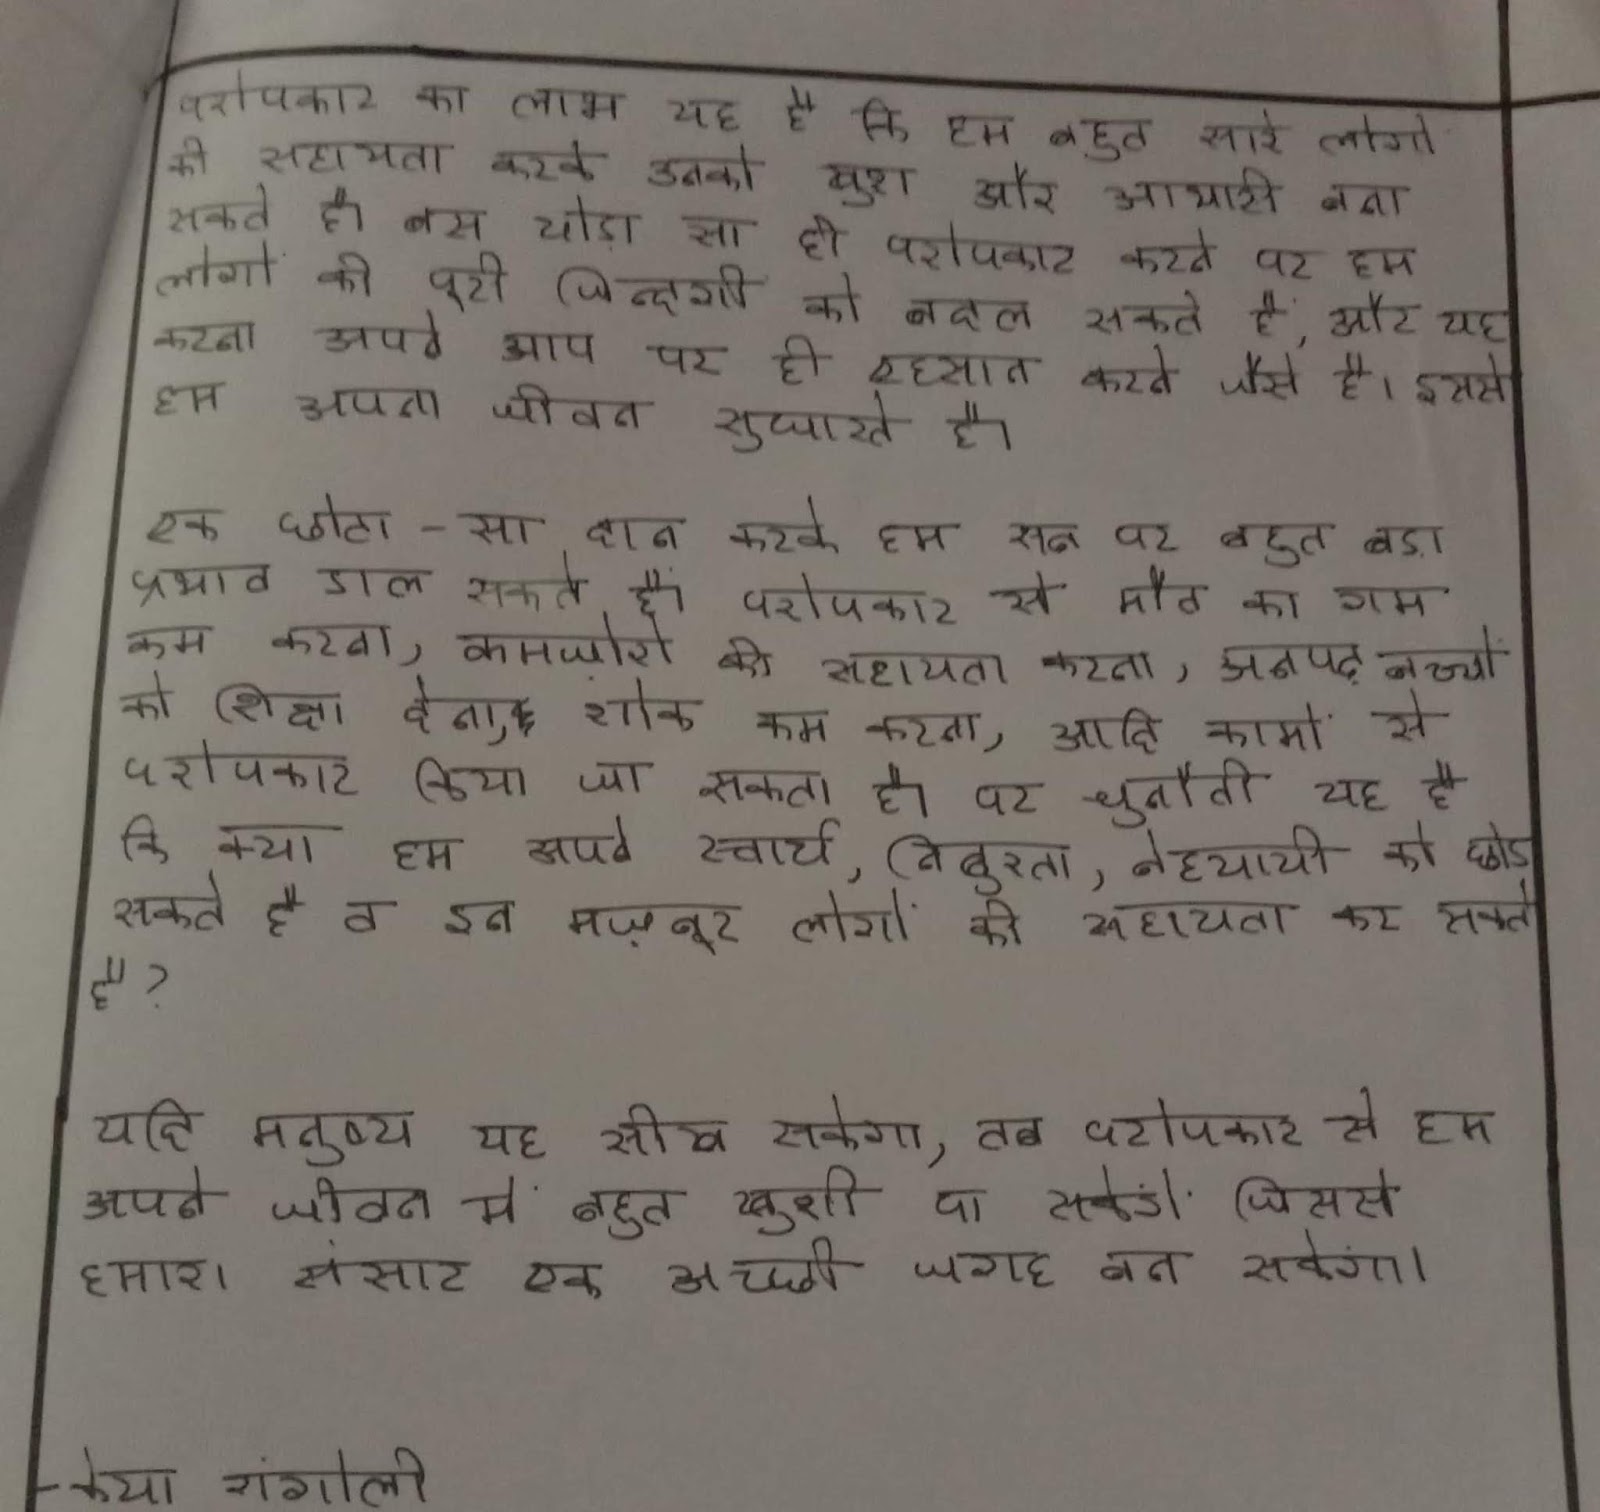 परोपकार का लाभ यह है कि हम बहुत सारे लोगों
की सहायता करके उनको खुश और आभारी बना
सकते है। बस थोड़ा सा ही परोपकार करने पर हम
लोगों की पूरी जिन्दगी को बदल सकते हैं, और यह
करना अपने आप पर ही एहसान करने जैसे है। इससे
हम अपना जीवन सुधारते है।
एक छोटा - सा दान करके हम सब पर बहुत बड़ा
प्रभाव डाल सकते हैं। परोपकार से मौत का गम
कम करना, कमज़ोरो की सहायता करना, अनपढ़ बच्चों
को शिक्षा देना, शोक कम करना, आदि कामों से
परोपकार किया जा सकता है। पर चुनौती यह है
कि क्या हम अपने स्वार्थ, निठुरता, बेहयायी को छोड
सकते है व इन मज़बूर लोगों की सहायता कर सकते
है?
यदि मनुष्य यह सीख सकेगा, तब परोपकार से हम
अपने जीवन में बहुत खुशी पा सकेंगें जिससे
हमारा संसार एक अच्छी जगह बन सकेगा।
- केया गंगोली